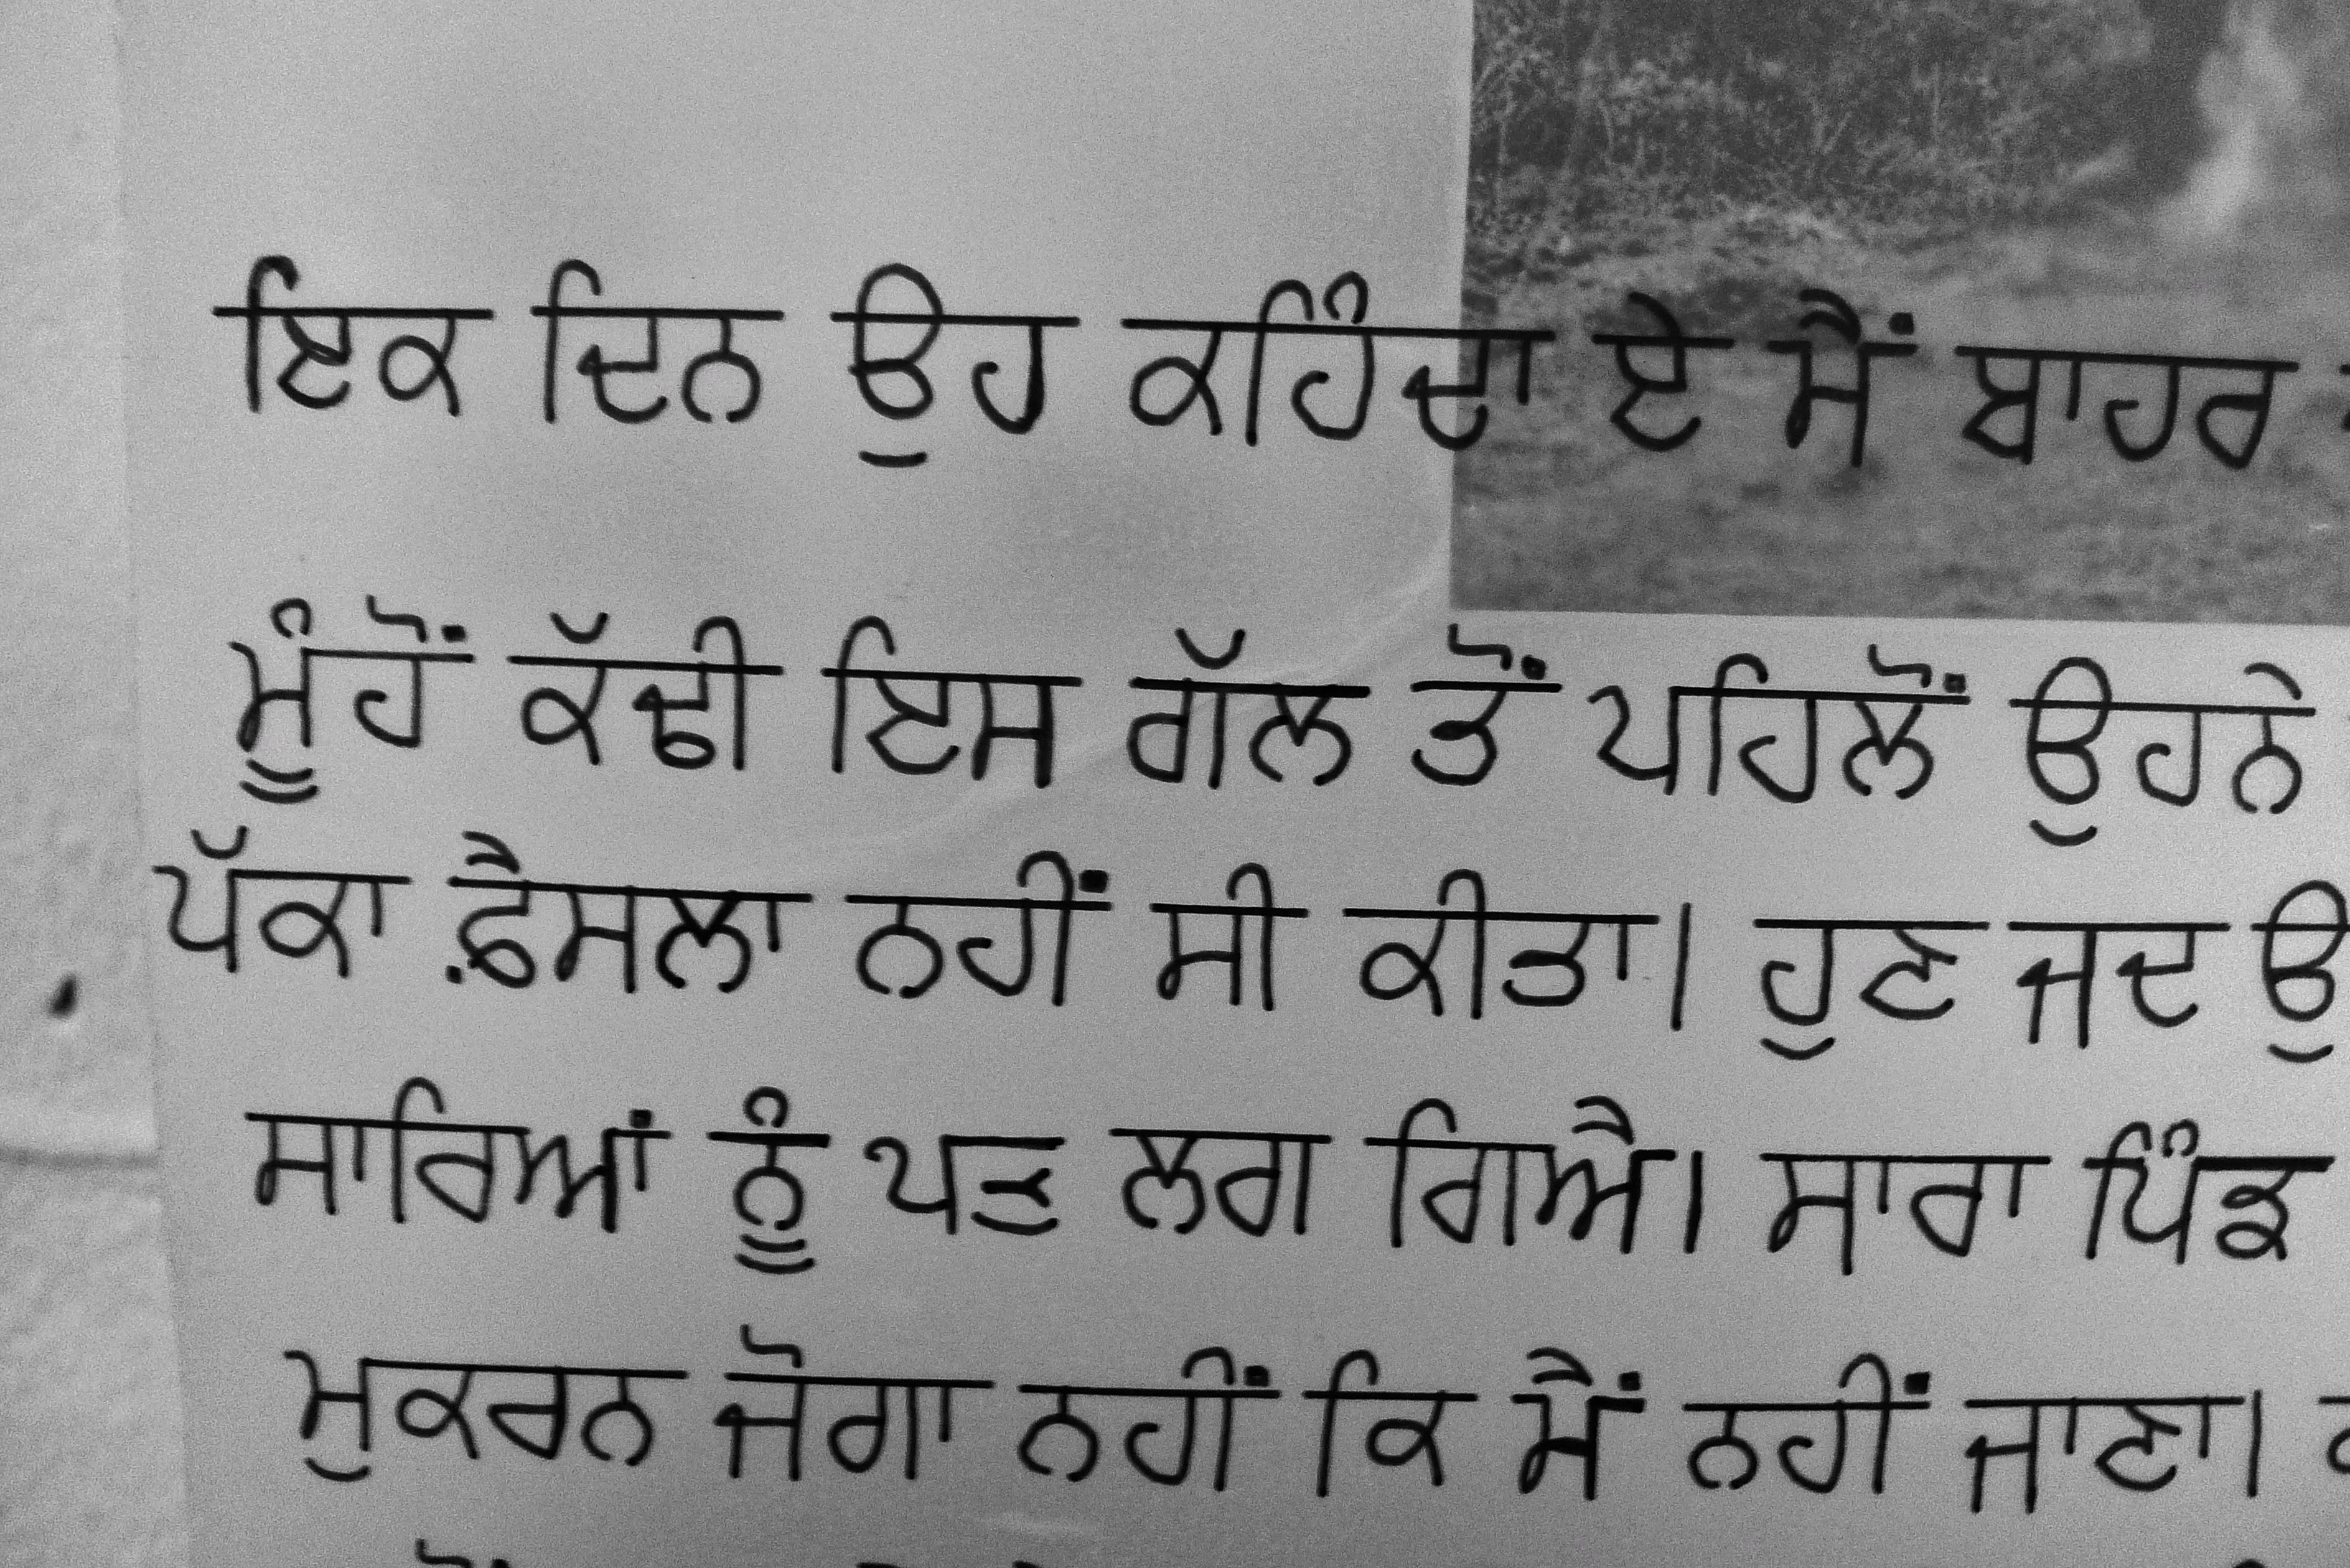 ਇਕ ਦਿਨ ਉਹ ਕਹਿੰਦਾ ਏ ਮੈਂ ਬਾਹਰ
ਮੂੰਹੋਂ ਕੱਢੀ ਇਸ ਗੱਲ ਤੋਂ ਪਹਿਲੋਂ ਉਹਨੇ
ਪੱਕਾ ਫ਼ੈਸਲਾ ਨਹੀਂ ਸੀ ਕੀਤਾ। ਹੁਣ ਜਦ ਉ
ਸਾਰਿਆਂ ਨੂੰ ਪਤ ਲਗ ਗਿਐ। ਸਾਰਾ ਪਿੰਡ
ਮੁਕਰਨ ਜੋਗਾ ਨਹੀਂ ਕਿ ਮੈਂ ਨਹੀਂ ਜਾਣਾ।